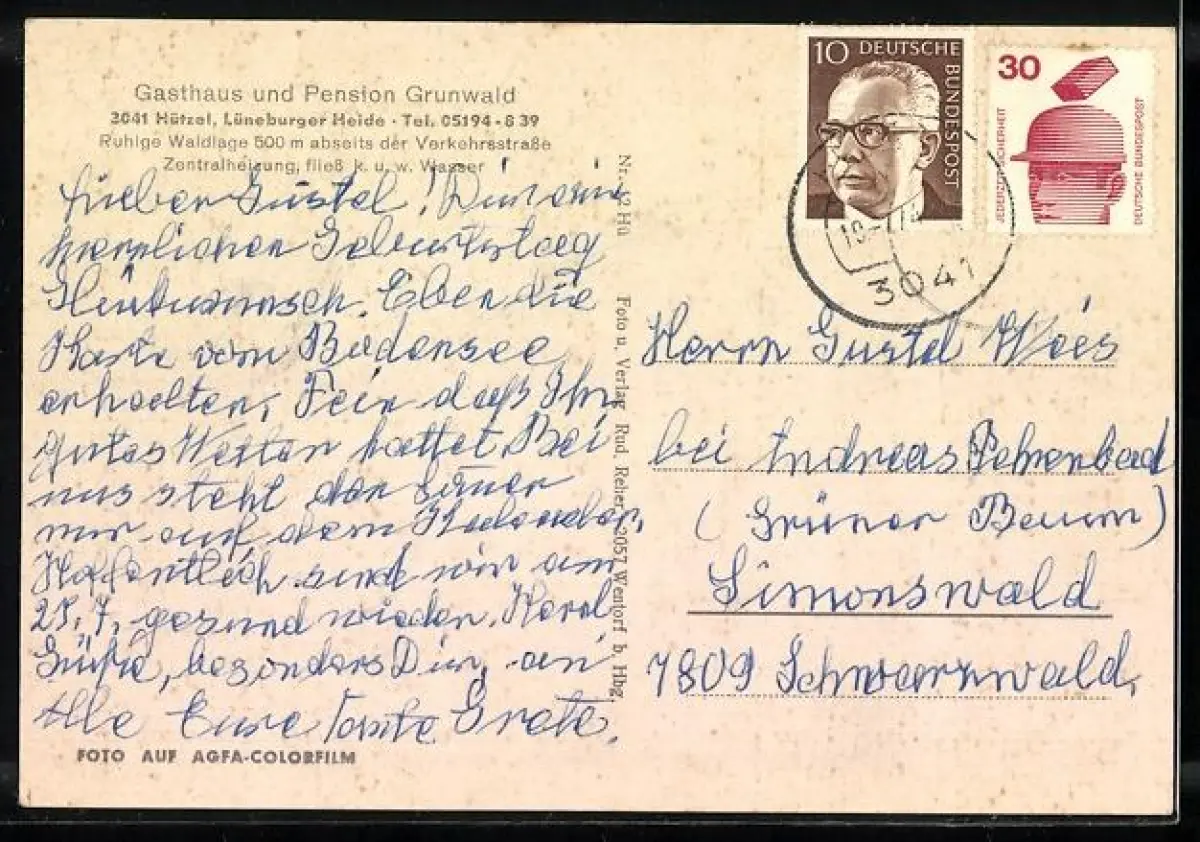 Gasthaus und Pension Grunwald
3041 Hützel, Lüneburger Heide - Tel. 05194 - 8 39
Ruhige Waldlage 500 m abseits der Verkehrsstraße
Zentralheizung, fließ k. u. w. Wasser
Lieber Gustel! Dir einen
herzlichen Geburtstag
Glückwunsch. Eben die
Karte vom Bodensee
erhalten, Fein daß Ihr
gutes Wetter hattet. Bei
uns steht der
nur auf dem Kalender,
Hoffentlich sind wir am
7. gesund wieder.
Grüße, besonders Dir, an
Alle Eure Tante Grete.
FOTO AUF AGFA-COLORFILM
Hü Foto u. Verlag Rud. Reher, 2057 Wentorf b. Hbg.
10 DEUTSCHE BUNDESPOST
30
JEDERZEIT SICHERHEIT
DEUTSCHE BUNDESPOST
3041
Herrn Gustel Weis
bei Andreas
(Grüner Baum)
Simonswald
7809 Schwarzwald,